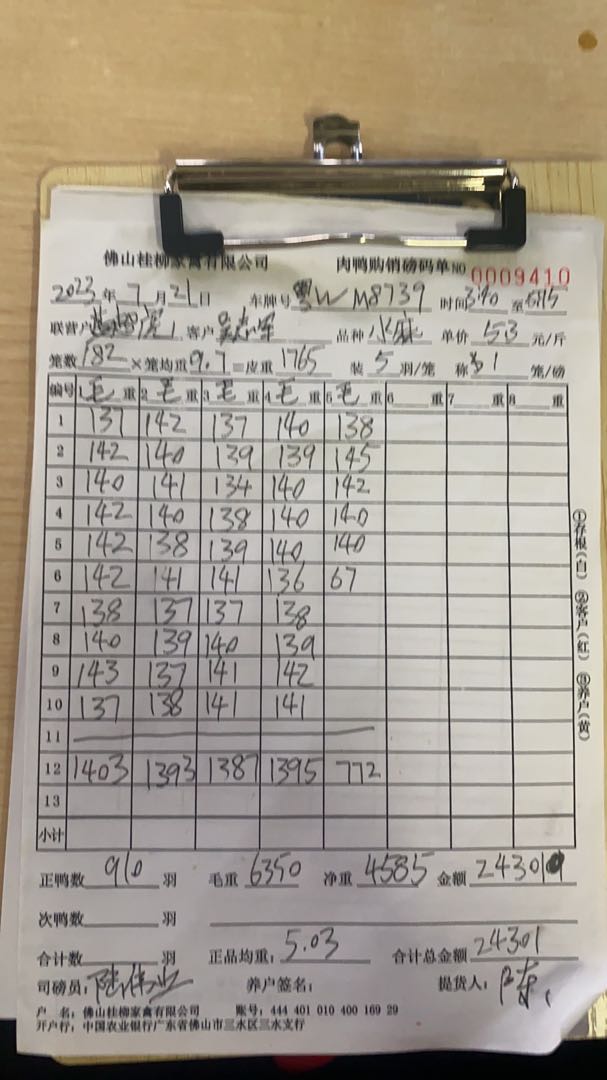 佛山桂柳家禽有限公司 肉鸭购销磅码单 NO 0009410
2023年7月21日 车牌号 粤W M8739 时间 3:40 至
联营户 客户 品种 水麻 单价 5.3 元/斤
笼数 182 ×笼均重 9.7 =皮重 1765 装 5 羽/笼 称 笼/磅
编号 1毛重 2毛重 3毛重 4毛重 5毛重 6 重 7 重 8 重
1 137 142 137 140 138
2 142 140 139 139 145
3 140 141 134 140 142
4 142 140 138 140 140
5 142 138 139 140 140
6 142 141 141 136 67
7 138 137 137 138
8 140 139 140 139
9 143 137 141 142
10 137 138 141 141
11
12 1403 1393 1387 1395 772
13
小计
正鸭数 910 羽 毛重 6350 净重 4585 金额 24301
次鸭数 羽
合计数 羽 正品均重: 5.03 合计总金额 24301
司磅员: 养户签名: 提货人:
户 名: 佛山桂柳家禽有限公司 账号: 444 401 010 400 169 29
开户行: 中国农业银行广东省佛山市三水区三水支行
①存根(白) ②客户(红) ③养户(黄)